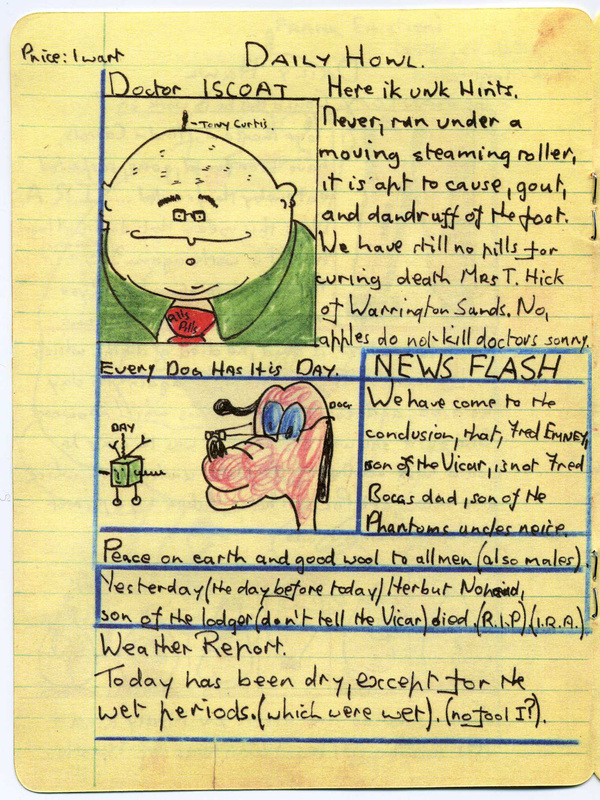 Price: 1 wart
DAILY HOWL.
Doctor ISCOAT
TONY CURTIS.
Pills
Pills
Here ik unk Hints.
Never, run under a
moving steaming roller,
it is apt to cause, gout,
and dandruff of the foot.
We have still no pills for
curing death Mrs T. Hick
of Warrington Sands. No,
apples do not kill doctors sorry.
EVERY DOG HAS IT is DAY.
DAY
DOG
NEWS FLASH
We have come to the
conclusion, that, Fred EMNEY,
son of the Vicar, is not Fred
Bocas dad, son of the
Phantoms uncles neice.
Peace on earth and good wool to all men (also males)
Yesterday (the day before today) Herbut No
son of the lodger (don't tell the Vicar) died. (R.I.P) (I.R.A.)
Weather Report.
Today has been dry, except for the
wet periods. (which were wet). (no fool I?).